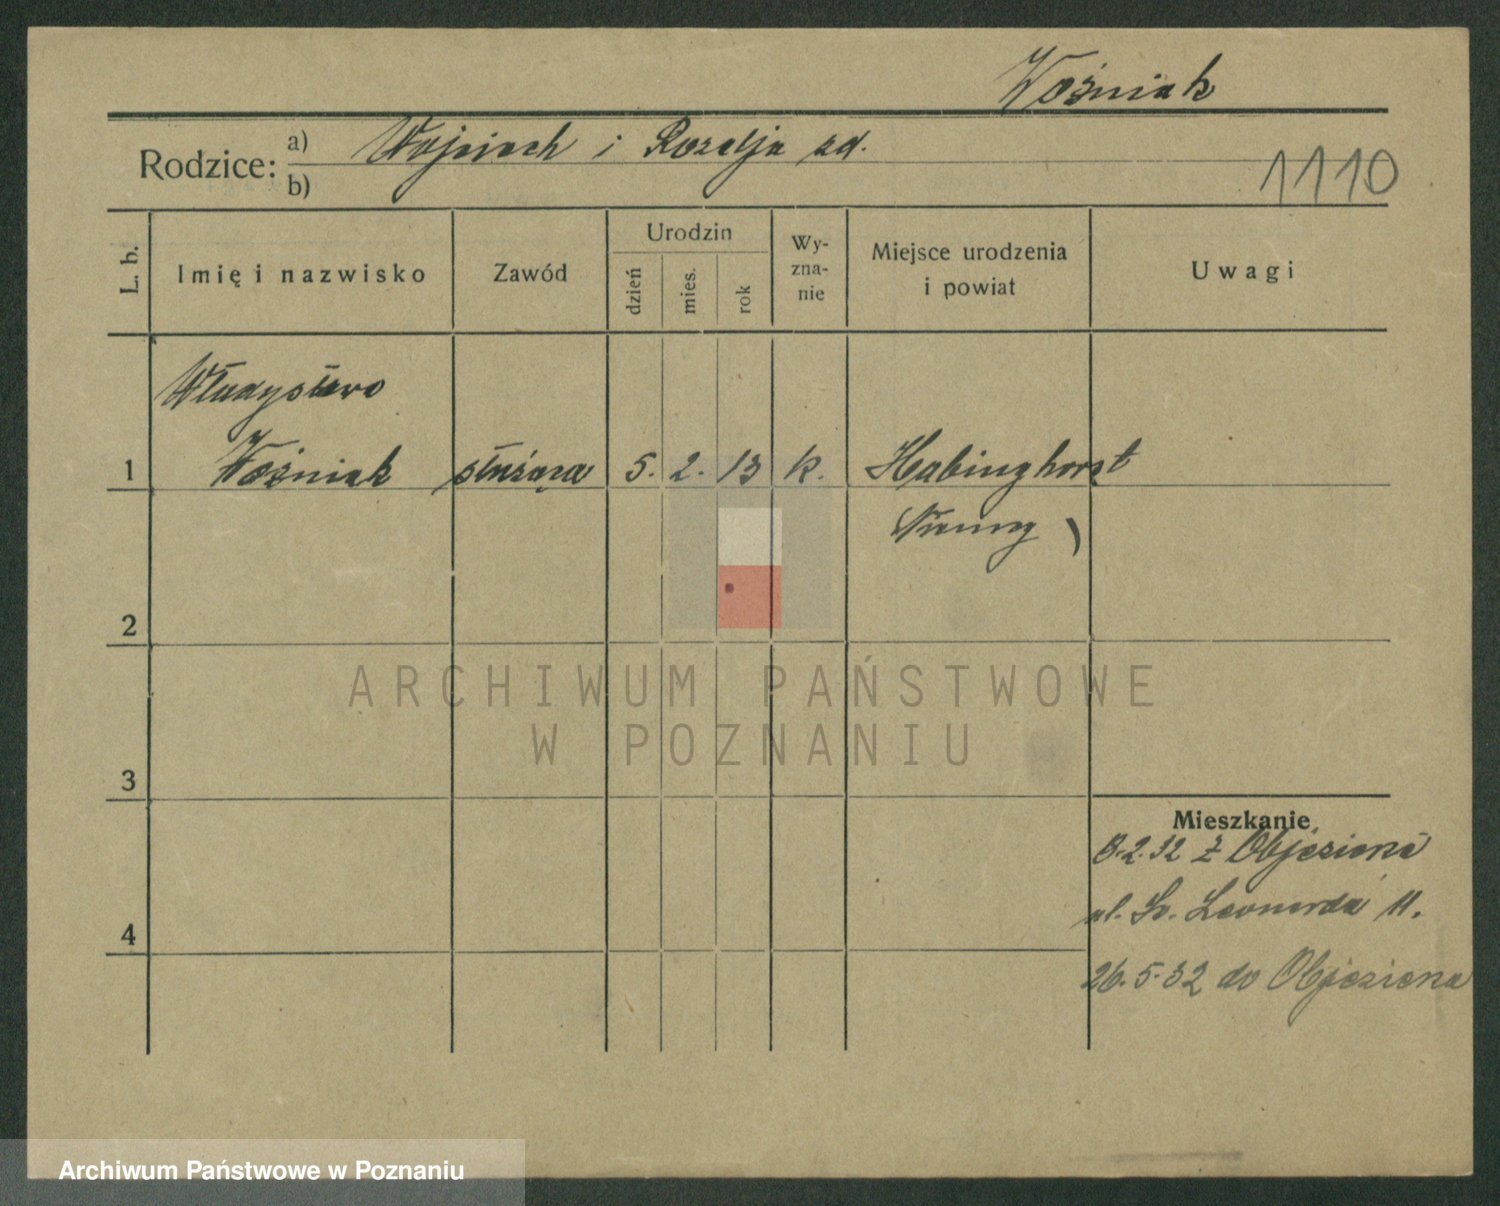 Woźniak
Rodzice: a) Wojciech i Rozalja zd.
b)
1110
L. b.
Imię i nazwisko
Zawód
Urodzin
dzień
mies.
rok
Wy-
zna-
nie
Miejsce urodzenia
i powiat
Uwagi
Władysława
1 Woźniak służąca 5. 2. 13 k. Habinghorst
Niemcy )
2
3
4
Mieszkanie
8.2.32 z Objezierza
ul. Św. Leonarda 11.
26.5.32 do Objezierza
ARCHIWUM PAŃSTWOWE
W POZNANIU
Archiwum Państwowe w Poznaniu